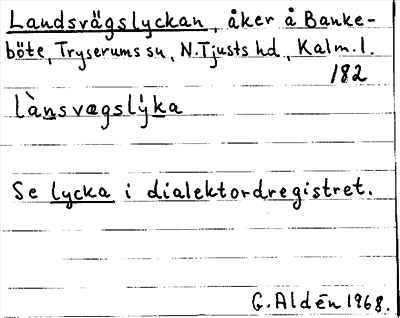 Landsvägslyckan, åker å Banke-
böte, Tryserums sn, N.Tjusts hd, Kalm.l.
182
lànsvægslýka
Se lycka i dialektordregistret.
G. Aldén 1968.